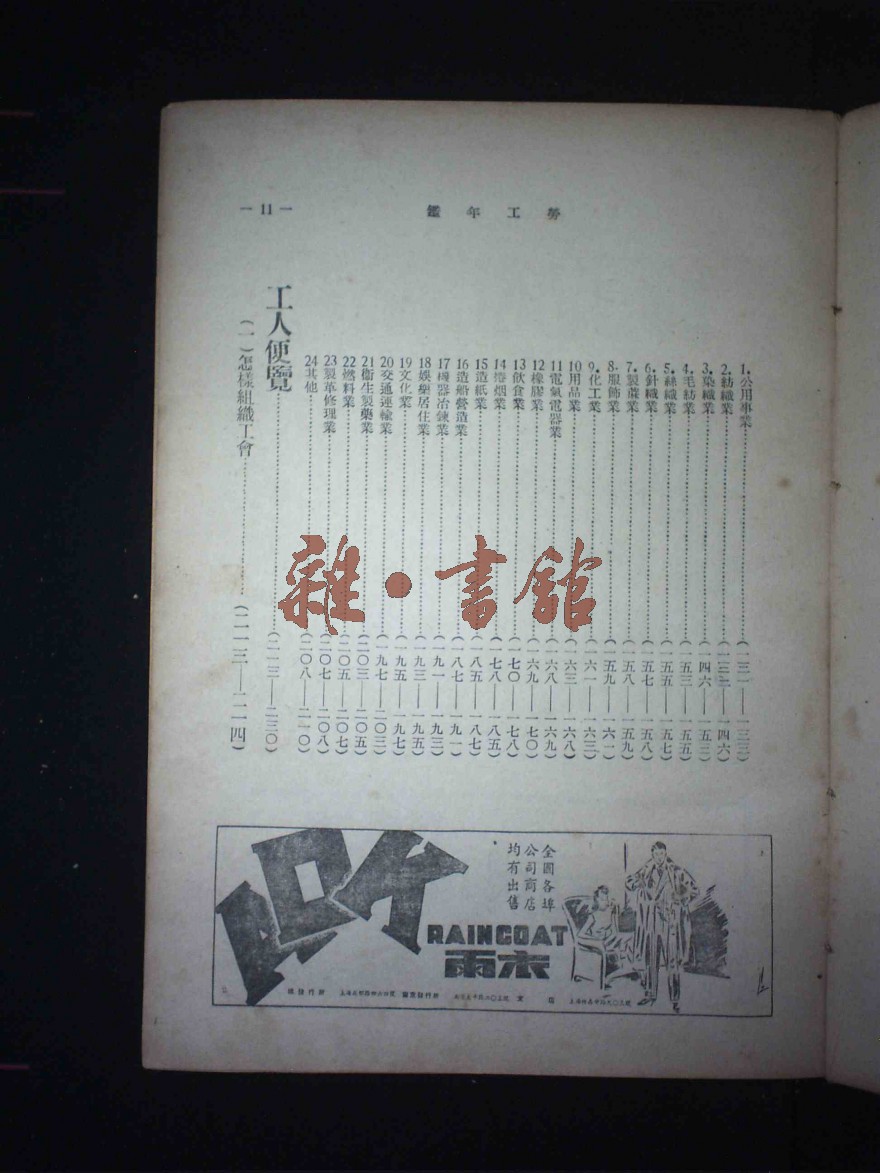 勞工年鑑
— 11 —
1.公用事業……(一三一——一三三)
2.紡織業……(一三三——一四六)
3.染織業……(一四六——一五三)
4.毛紡業……(一五三——一五五)
5.絲織業……(一五五——一五七)
6.針織業……(一五七——一五八)
7.製蓆業……(一五八——一五九)
8.服飾業……(一五九——一六一)
9.化工業……(一六一——一六三)
10用品業……(一六三——一六八)
11電氣電器業……(一六八——一六九)
12橡膠業……(一六九——一七〇)
13飲食業……(一七〇——一七八)
14捲烟業……(一七八——一八五)
15造紙業……(一八五——一八七)
16造船營造業……(一八七——一九一)
17機器冶鍊業……(一九一——一九三)
18娛樂居住業……(一九三——一九五)
19文化業……(一九五——一九七)
20交通運輸業……(一九七——二〇三)
21衞生製藥業……(二〇三——二〇五)
22燃料業……(二〇五——二〇七)
23製革修理業……(二〇七——二〇八)
24其他……(二〇八——二一〇)
工人便覽……(二一三——二三〇)
(一)怎樣組織工會……(二一三——二一四)
雜·書館
全國各埠
公司商店
均有出售
ADK
RAINCOAT
雨衣